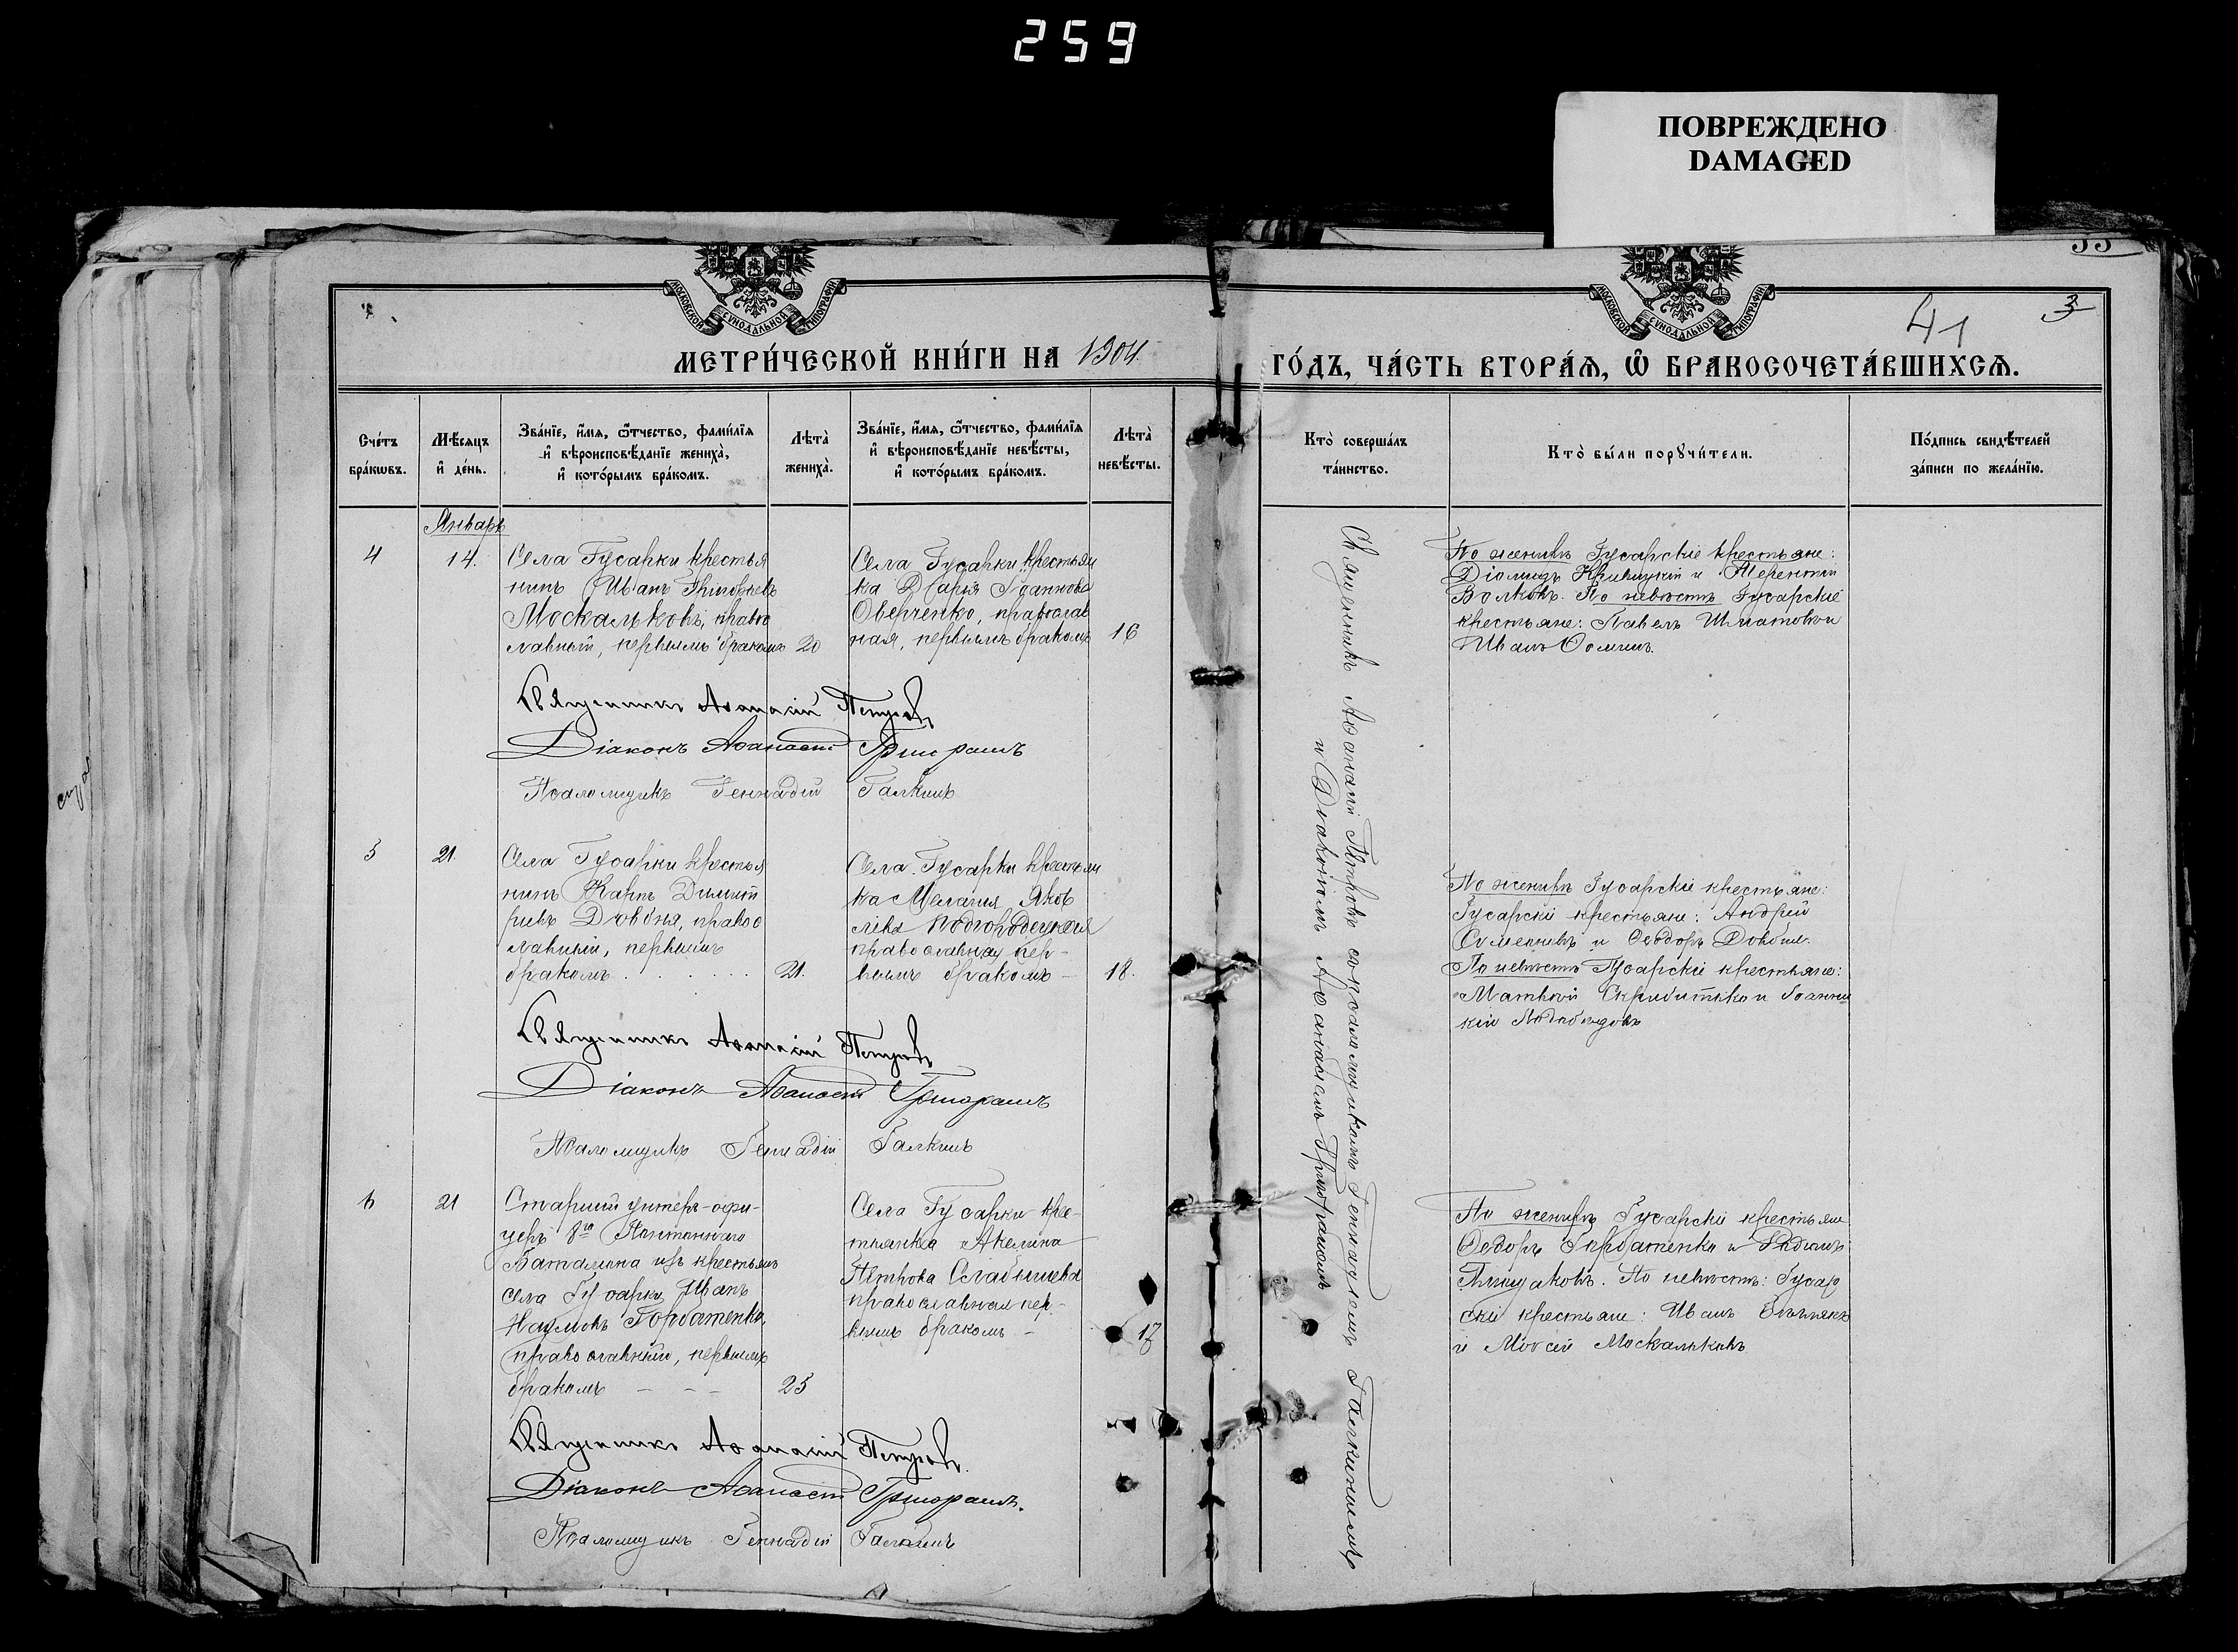 259
ПОВРЕЖДЕНО
DAMAGED
МОСКОВСКОЙ СѴНОДАЛЬНОЙ ТИПОГРАФІИ
МОСКОВСКОЙ СѴНОДАЛЬНОЙ ТИПОГРАФІИ
41
3
МЕТРИ́ЧЕСКОЙ КНИ́ГИ НА 1904
ГО́ДЪ, ЧА́СТЬ ВТОРА́Ѧ, Ѡ҆ БРАКОСОЧЕТА́ВШИХСѦ.
Сче́тъ
бра́кѡвъ.
Мѣ́сѧцъ
и҆ де́нь.
Зва́нїе, и҆́мѧ, ѻ҆́тчество, фами́лїѧ
и҆ вѣроисповѣ́данїе жениха̀,
и҆ кото́рымъ бра́комъ.
Лѣта̀
жениха̀.
Зва́нїе, и҆́мѧ, ѻ҆́тчество, фами́лїѧ
и҆ вѣроисповѣ́данїе невѣ́сты,
и҆ кото́рымъ бра́комъ.
Лѣта̀
невѣ́сты.
Кто̀ соверша́лъ
та́инство.
Кто̀ бы́ли порꙋчи́тели.
По́дпись свидѣ́телей
за́писи по жела́нїю.
Январь
4
14.
Села Гусарки крестья
нинъ Иванъ Григорьевъ
Москальковъ, право
лавный, первымъ бракомъ
20
Села Гусарки крестьян
ка Дарія Іоаннова
Оверченко, православ
ная, первымъ бракомъ
16
Священникъ Аѳанасій Петровъ съ псаломщикомъ Геннадіемъ Галкинымъ
и Діакономъ Аѳанасіемъ
По женихѣ Гусарскіе крестьяне:
Діомидъ Кривицкій и Терентій
Волковъ. По невѣстѣ Гусарскіе
крестьяне: Павелъ и
Иванъ Ѳоминъ.
Священникъ Аѳанасій Петровъ
Діаконъ Аѳанасій
Псаломщикъ Геннадій Галкинъ
5
21.
Села Гусарки крестья
нинъ Карпъ Димит
ріевъ Довбня, правос
лавный, первымъ
бракомъ
21.
Села Гусарки крестьян
ка Меланія Яков
лева
православная пер-
вымъ бракомъ -
18.
По женихѣ Гусарскіе крестьяне:
Гусарскіе крестьяне: Андрей
и Ѳеодоръ Довбня.
По невѣстѣ Гусарскіе крестьяне:
Матвѣй и Іоанни
кій
Священникъ Аѳанасій Петровъ
Діаконъ Аѳанасій
Псаломщикъ Геннадій Галкинъ
6
21
Старшій унтеръ-офи-
церъ 8го Понтоннаго
Баталіона изъ крестьянъ
села Гусарки Иванъ
Наумовъ Горбатенко,
православный, первымъ
бракомъ - - -
25
Села Гусарки крес-
тьянка Акилина
Петрова Слабышева
православная пер-
вымъ бракомъ -
17
По женихѣ Гусарскіе крестьяне
Ѳеодоръ Горбатенко и
По невѣстѣ: Гусар
скіе крестьяне: Иванъ
и Моѵсей Москальковъ
Священникъ Аѳанасій Петровъ.
Діаконъ Аѳанасій
Псаломщикъ Геннадій Галкинъ